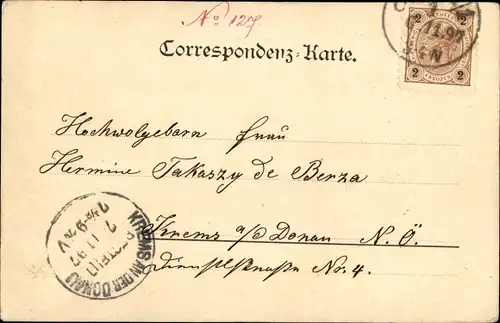 No 127
Correspondenz-Karte.
2 KREUZER 2
11.97
Hochwolgeborn Frau
Hermine Takaszy de Benza
Krems a/d Donau N. Ö.
Dienstlstraße Nr. 4.
KREMS AN DER DONAU
BESTELLT
7 11 97